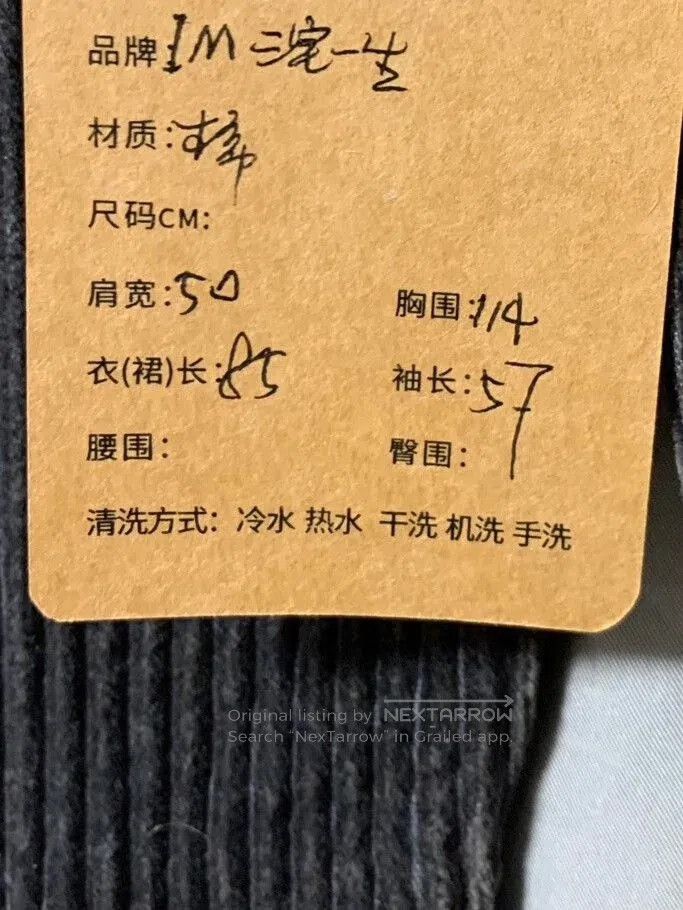 品牌 IM 三宅一生
材质:棉
尺码CM:
肩宽:50
胸围:114
衣(裙)长:85
袖长:57
腰围:
臀围:
清洗方式: 冷水 热水 干洗 机洗 手洗
Original listing by NEXTARROW
Search "NexTarrow" in Grailed app.